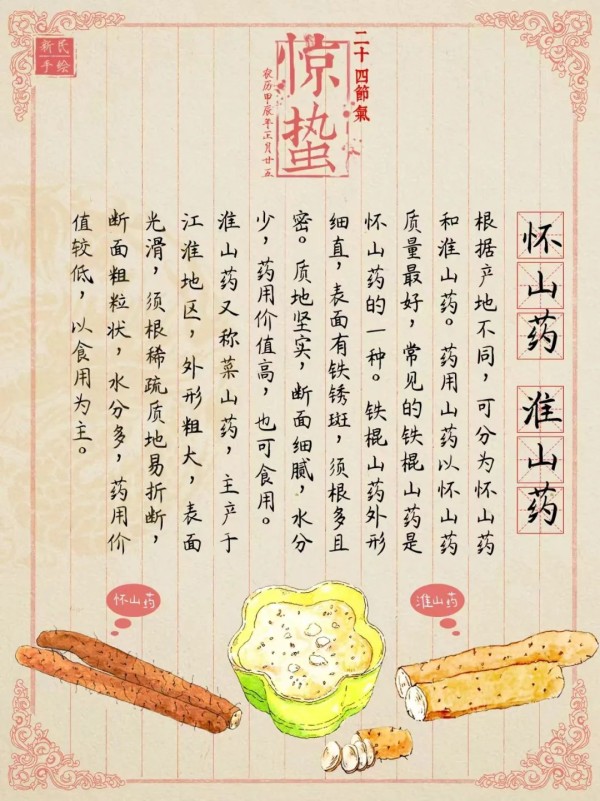 二十四節氣
惊蛰
农历甲辰年正月廿五
新氏
手绘
怀山药 淮山药
根据产地不同，可分为怀山药
和淮山药。药用山药以怀山药
质量最好，常见的铁棍山药是
怀山药的一种。铁棍山药外形
细直，表面有铁锈斑，须根多且
密。质地坚实，断面细腻，水分
少，药用价值高，也可食用。
淮山药又称菜山药，主产于
江淮地区，外形粗大，表面
光滑，须根稀疏质地易折断，
断面粗粒状，水分多，药用价
值较低，以食用为主。
怀山药
淮山药